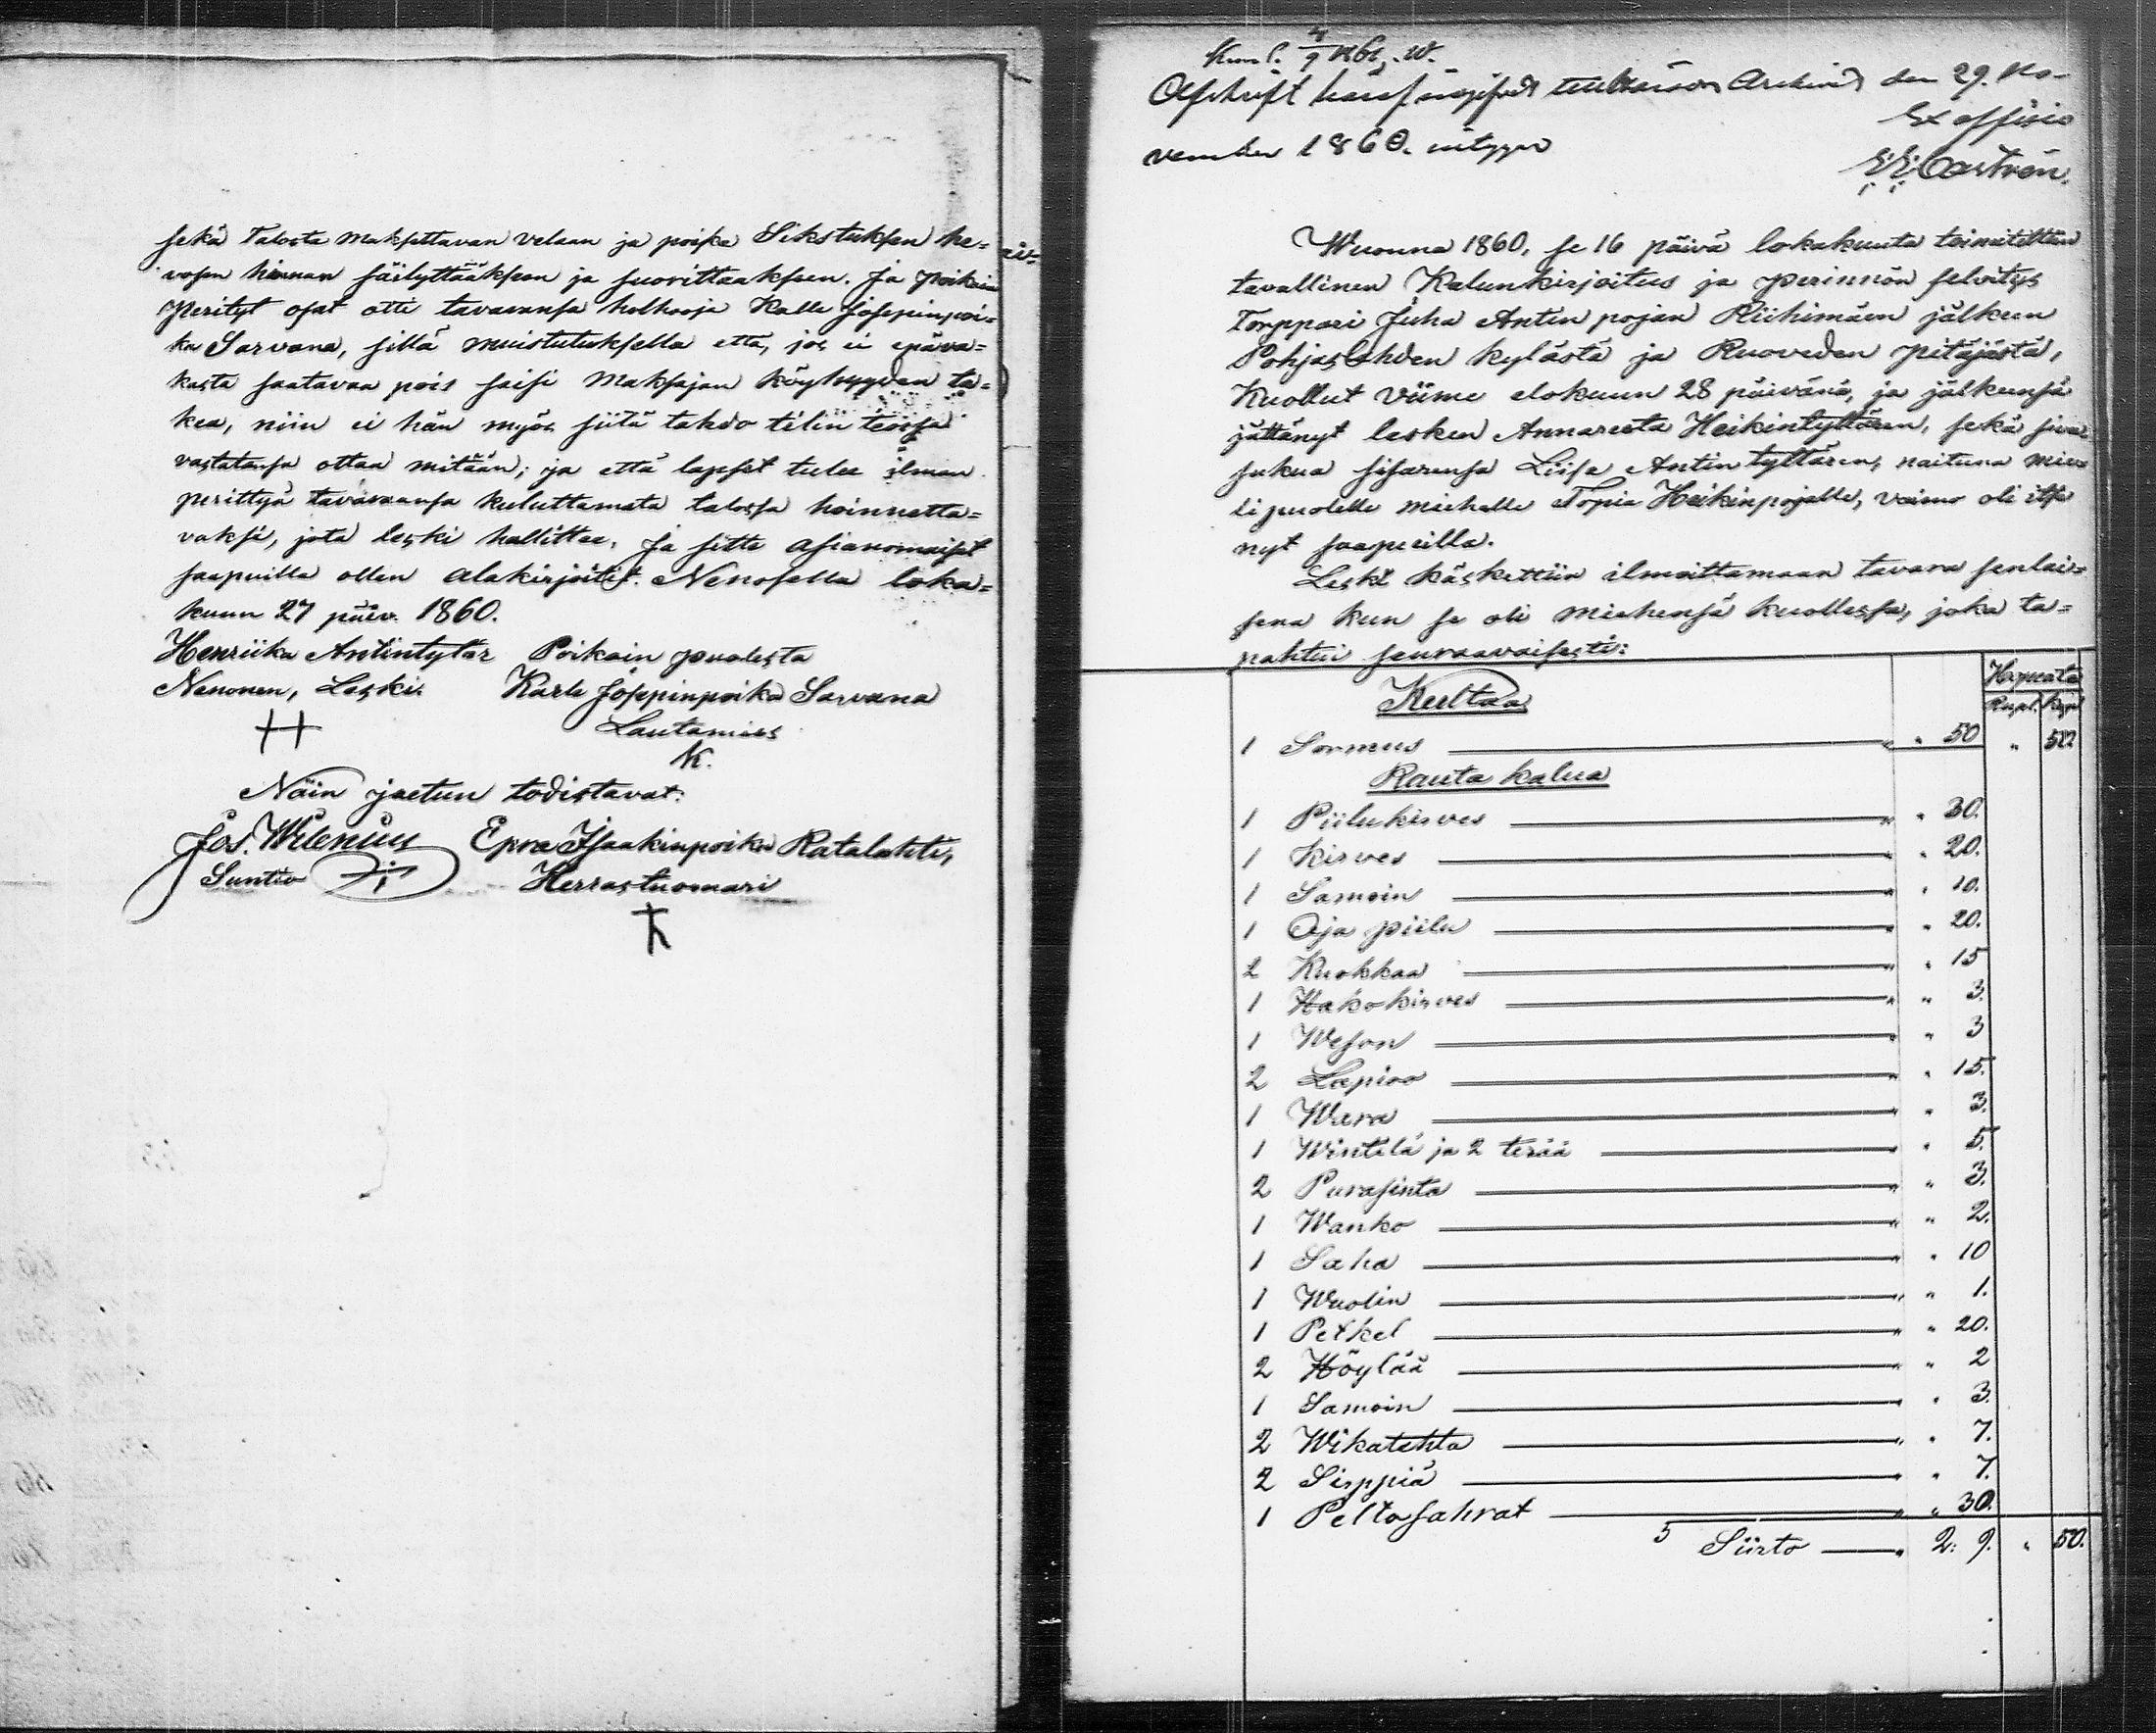 sekä talosta maksettavan velaan ja poika Sikstuksen he=
vosen hinnan säilyttääksen ja suorittaaksen. Ja poikain
perityt osat otti tavaransa holhooja Kalle Joseppinpoi=
ka Sarvana, sillä muistutuksella että, jos ei epäva=
kasta saatavaa pois saisi maksajan köyhyyden ta=
kea, niin ei hän myös siitä tahdo tiliin teossa
vastatansa ottaa mitään; ja että lapset tulee ilman
perittyä tavaraansa kuluttamata talossa hoinnetta=
vaksi, jota leski hallittee. Ja sitte asianomaiset
saapuilla ollen alakirjoitit. Nenosella loka=
kuun 27 päiv. 1860.
Henriika Antintytär Poikain puolesta
Nenonen, Leski. Karle Joseppinpoika Sarvana
Lautamies
K.
Näin jaetun todistavat:
Jos. Wilenius Epra Isaakinpoika Ratalahti,
Suntio Herrastuomari
Afskrift häraf ingifvet till Häradets Archivet den 29. No-
vember 1860. intygar
Ex officio
Castrén.
Wuonna 1860, se 16 päivä lokakuuta toimitettiin
tavallinen Kalunkirjoitus ja perinnön selvitys
Torppari Juha Antin pojan Riihimäen jälkeen
Pohjaslahden kylästä ja Ruoveden pitäjästä,
Kuollut viime elokuun 28 päivänä, ja jälkeensä
jättänyt lesken Annareeta Heikintyttären, sekä sivu
sukua sisarensa Liisa Antin tyttären, naituna mie
li puolelle miehelle Topia Heikinpojalle, vaimo oli itse
nyt saapuilla.
Leski käskettiin ilmoittamaan tavara senlai=
sena kun se oli miehensä kuollessa, joka ta=
pahtui seuraavaisesti:
Hopeata
Kultaa Rupl. Kop
1 Sormus " " 50 " 50
Rauta kalua
1 Piilukirves " " 30.
1 Kirves " 20.
1 Samoin " 10.
1 Oja piilu " " 20.
2 Kuokkaa " " 15
1 Hakokirves " " 3.
1 Weson " " 3
2 Lapioo " " 15.
1 Wara " " 3.
1 Wintilä ja 2 terää " " 5.
2 Purasinta " " 3.
1 Wanko " " 2.
1 Saha " " 10
1 Wuolin " " 1.
1 Petkel " " 20.
2 Höylää " " 2
1 Samoin " 3.
2 Wikatehta " " 7.
2 Sirppiä " " 7.
1 Peltosahrat " " 30.
Siirto " 2. 9. " 50.